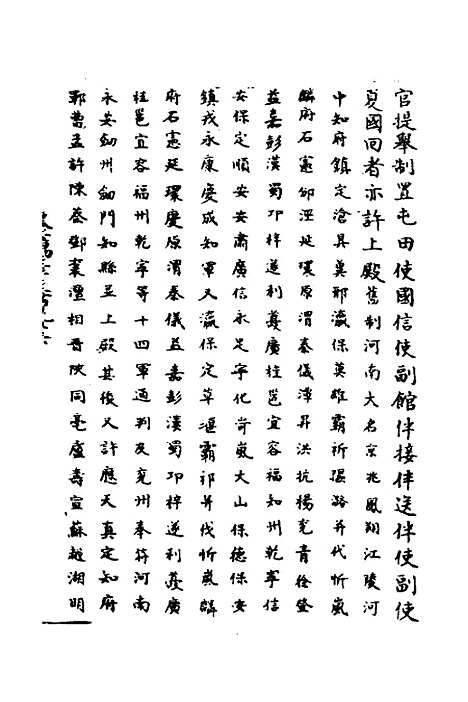 官提舉制置屯田使國信使副館伴接伴送伴使副使
夏國回者亦許上殿舊制河南大名京兆鳳翔江陵河
中知府鎮定滄具冀邢瀛保莫雄霸祈張潞并代忻嵐
麟府石憲邠涇延環原渭秦儀澤昇洪杭楊兖青徐登
益嘉彭漢蜀邛梓遂利蘷廣桂邕宜容福知州乾寧信
安保定順安安肅廣信永定寧化岢嵐大山保德保安
鎮戎永康慶成知軍又瀛保定草堰霸祁并伐忻嵐麟
府石憲延環慶原渭秦儀益嘉彭漢蜀邛梓遂利蘷廣
桂邕宜容福州乾寧等十四軍通判及兖州奉符河南
永安劒州劒門知縣並上殿其後又許應天真定知府
鄆曹孟許陳蔡鄧襄澶相晋陜同亳廬壽宣蘇越湖明